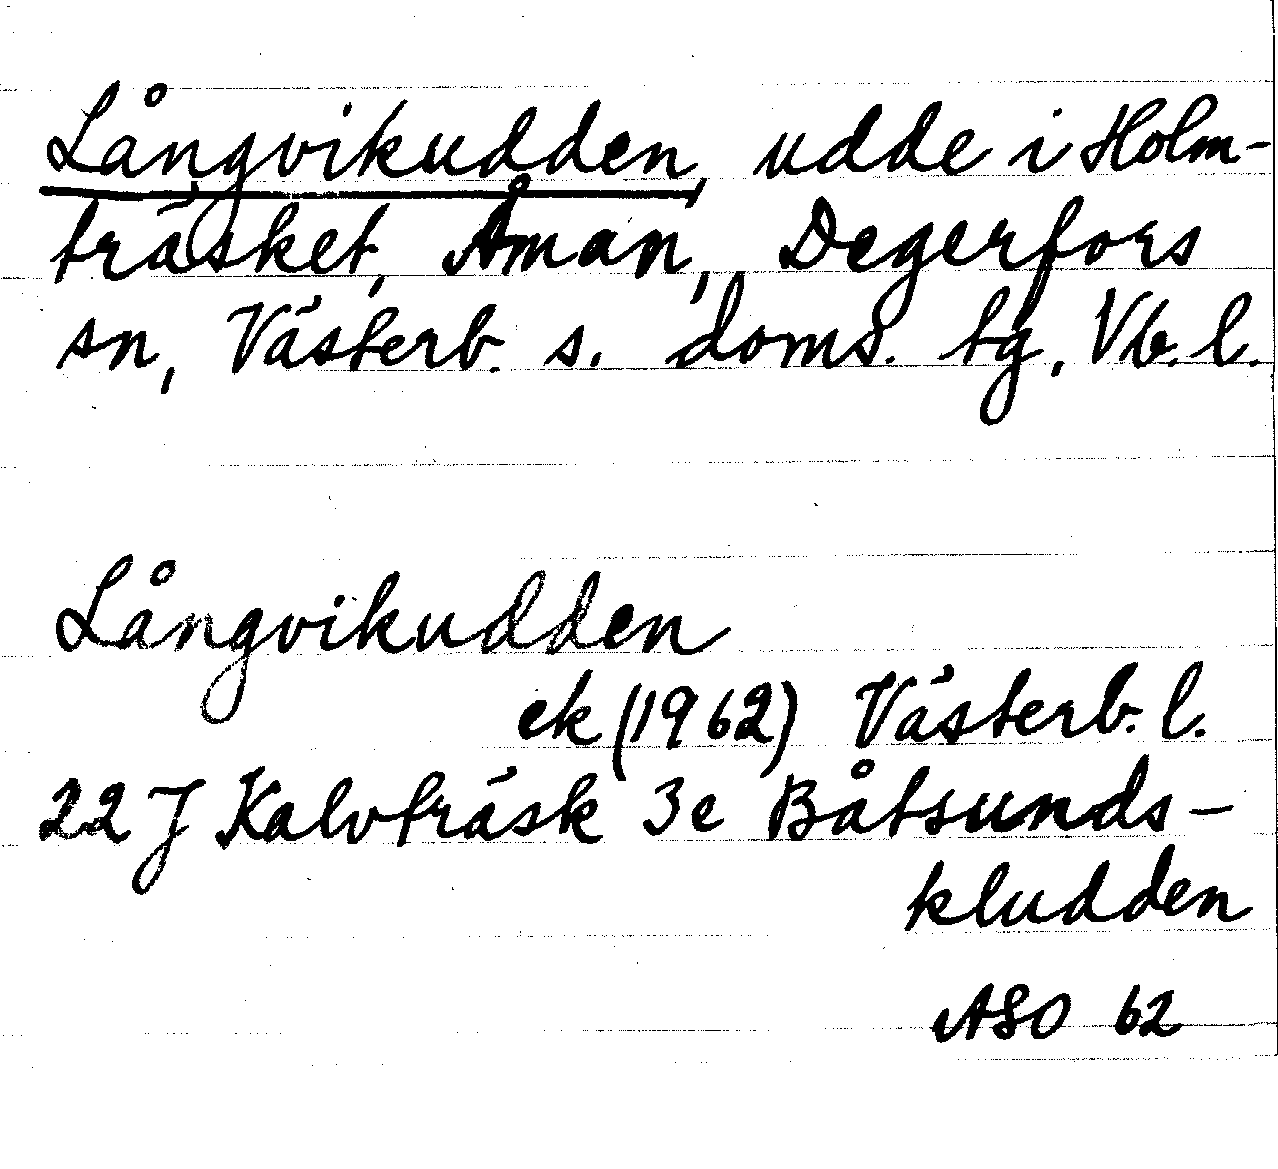 Långvikudden, udde i Holm-
träsket, Åman, Degerfors
sn, Västerb. s. doms. tg, Vb. l.
Långvikudden
ek (1962) Västerb. l.
22 J Kalvträsk 3e Båtsunds-
kludden
ASO 62